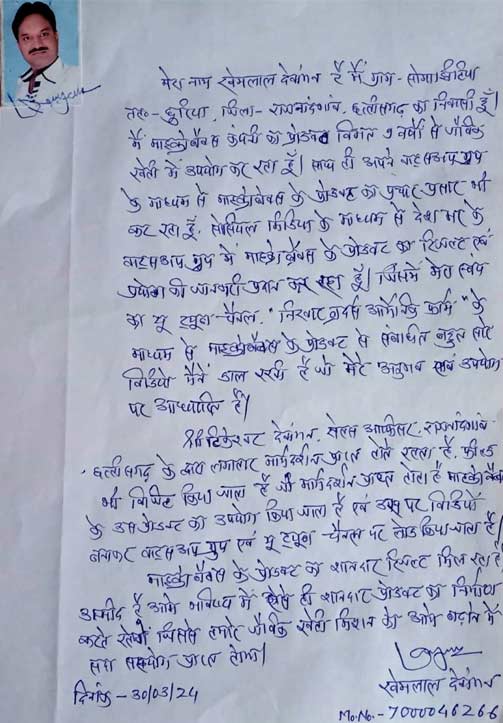 मेरा नाम खेमलाल देवांगन है मैं ग्राम - सोमाझिटिया
तह०- छुरिया, जिला- राजनांदगांव, छत्तीसगढ़ का निवासी हूँ।
मैं माइक्रोबैक्स कंपनी का प्रोडक्ट विगत 7 वर्षो से जैविक
खेती में उपयोग कर रहा हूँ। साथ ही अपने वाट्सअप ग्रुप
के माध्यम से माइक्रोबैक्स के प्रोडक्ट का प्रचार प्रसार भी
कर रहा हूँ. सोसियल मिडिया के माध्यम से देश भर के
वाट्सअप ग्रुप में माइक्रोबैक्स के प्रोडक्ट का रिजल्ट एवं
प्रयोग की जानकारी प्रदान कर रहा हूँ। जिसमें मेरा स्वयं
का यू ट्यूब - चैनल. " ब्रदर्स आर्गेनिक फार्म " के
माध्यम से माइक्रोबैक्स के प्रोडक्ट से संबंधित बहुत सारे
विडियो मैंने डाल रखी है जो मेरे अनुभव एवं उपयोग
पर आधारित है।
श्री टिकेश्वर देवांगन. सेल्स आफिसर. राजनांदगांव
छत्तीसगढ़ के द्वारा लगातार मार्गदर्शन प्राप्त होते रहता है. फील्ड
भी विजिट किया जाता है जो मार्गदर्शन प्राप्त होता है माइक्रोबैक्स
के उस प्रोडक्ट का उपयोग किया जाता है एवं उस पर विडियो
बनाकर वाट्सअप ग्रुप एवं यू ट्यूब - चैनल पर लोड किया जाता है।
माइक्रोबैक्स के प्रोडक्ट का शानदार रिजल्ट मिल रहा है
उम्मीद है आगे भविष्य में ऐसे ही शानदार प्रोडक्ट का निर्माण
करते रहेंगे जिससे हमारे जैविक खेती मिशन को आगे बढ़ाने में
सदा सहयोग प्राप्त होगा।
खेमलाल देवांगन
दिनांक - 30/03/24
Mo.No.- 7000046266